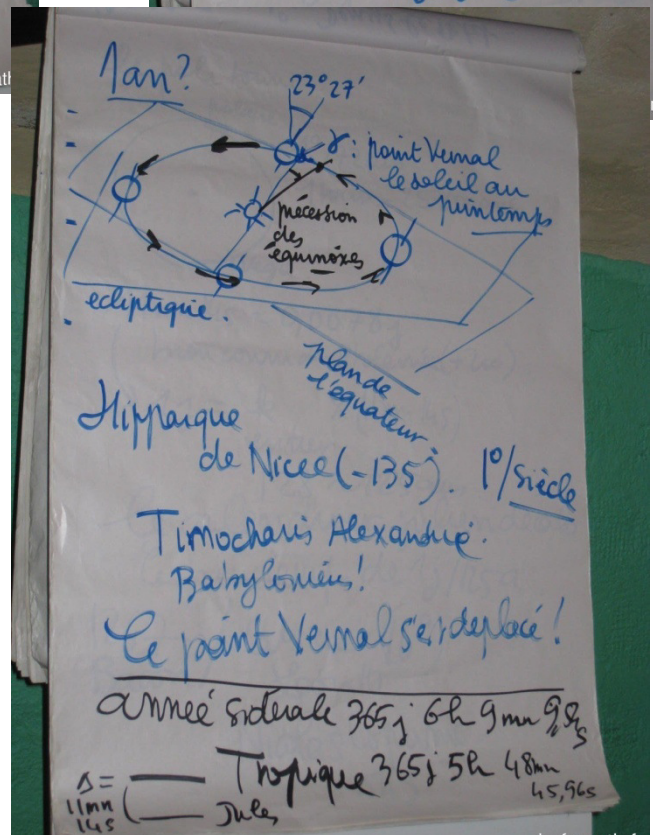 1 an ?
23° 27'
γ : point Vernal
le soleil au
printemps
précession
des
équinoxes
ecliptique.
plan de
l'équateur.
Hipparque
de Nicée (-135). 1°/siècle
Timocharis Alexandrie.
Babyloniens!
Le point Vernal s'est déplacé!
année sidérale 365j 6h 9mn
Tropique 365j 5h 48mn
45,96s
Δ =
11mn
14s
Jules